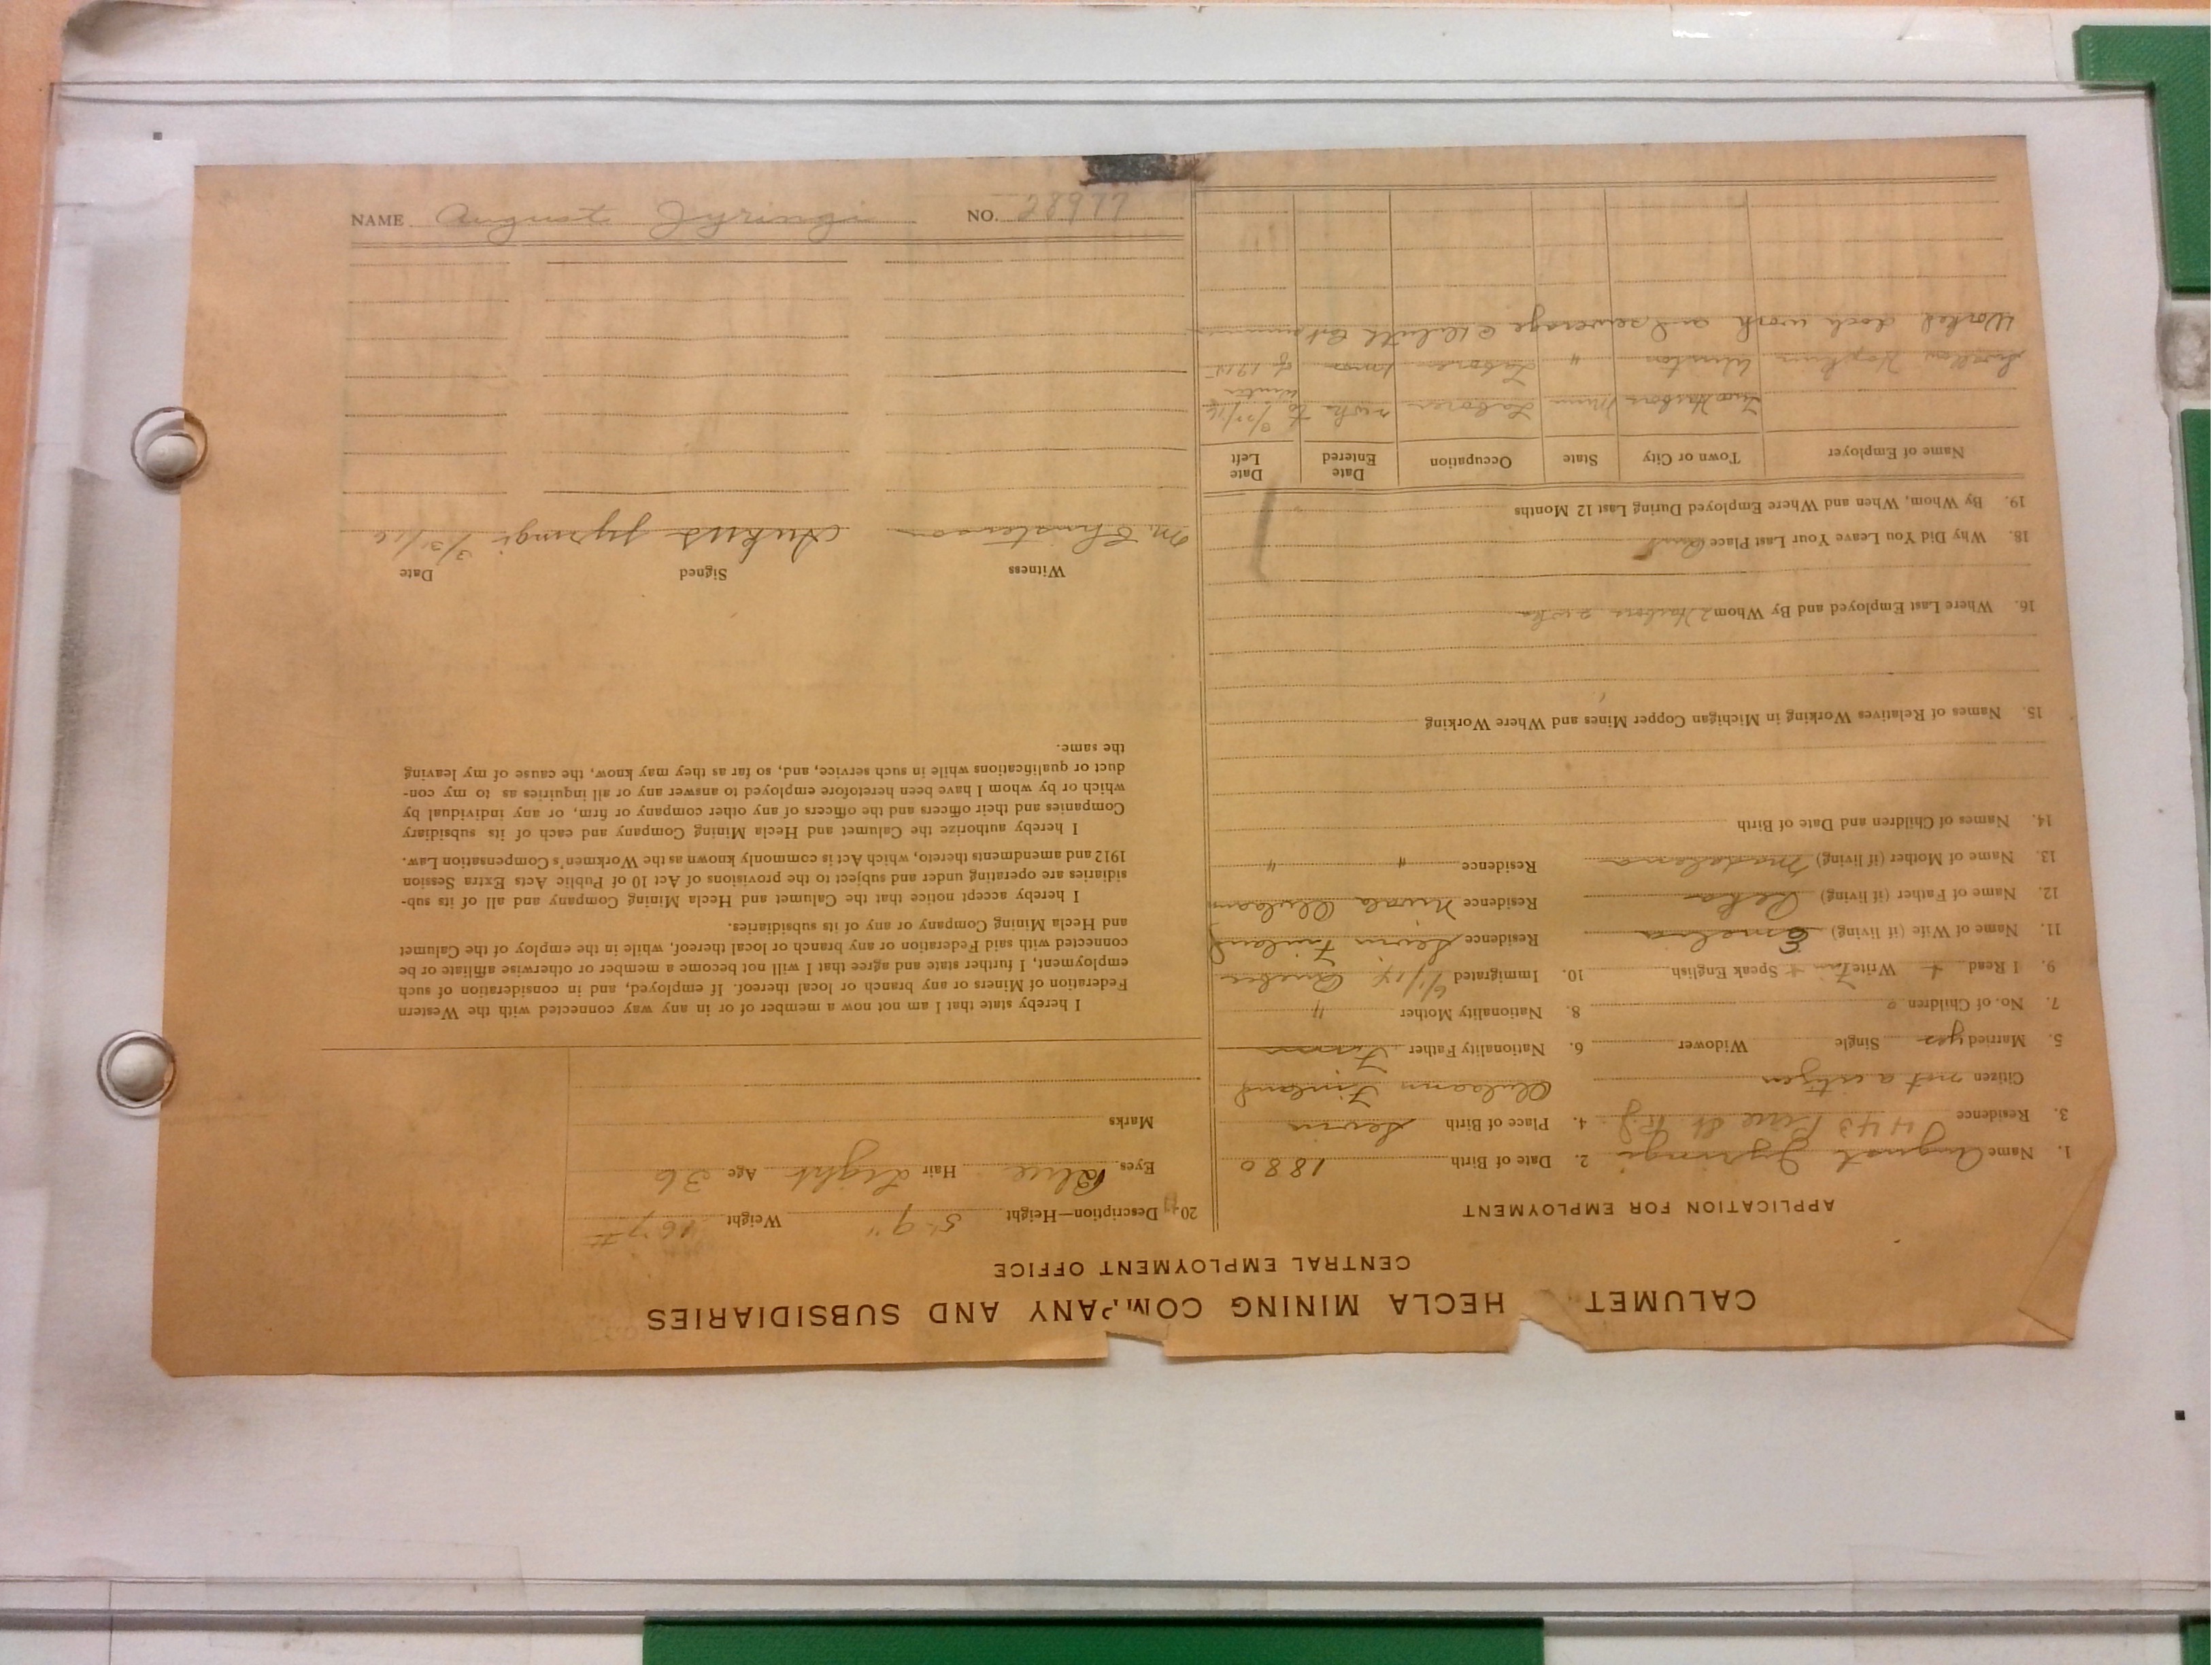 NAME August Jyringi NO. 28977
CALUMET HECLA MINING COMPANY AND SUBSIDIARIES
CENTRAL EMPLOYMENT OFFICE
APPLICATION FOR EMPLOYMENT
1. Name August Jyringi 2. Date of Birth 1880
3. Residence 443 St 4. Place of Birth
Citizen not a citizen Finland
5. Married yes Single Widower 6. Nationality Father Finn
7. No. of Children 0 8. Nationality Mother "
9. I Read + Write Finn + Speak English 10. Immigrated
11. Name of Wife (if living) Residence Finland
12. Name of Father (if living) Residence Nivala
13. Name of Mother (if living) Madalena Residence " "
14. Names of Children and Date of Birth
15. Names of Relatives Working in Michigan Copper Mines and Where Working
16. Where Last Employed and By Whom 2 Harbors 2 wks
18. Why Did You Leave Your Last Place
19. By Whom, When and Where Employed During Last 12 Months
Name of Employer Town or City State Occupation Date Entered Date Left
Two Harbors Minn Laborer 2 wks to
winter
Winston " Laborer of 1915
Worked dock work and sewerage
20. Description—Height 5' 9" Weight 167#
Eyes Blue Hair Light Age 36
Marks
I hereby state that I am not now a member of or in any way connected with the Western
Federation of Miners or any branch or local thereof. If employed, and in consideration of such
employment, I further state and agree that I will not become a member or otherwise affiliate or be
connected with said Federation or any branch or local thereof, while in the employ of the Calumet
and Hecla Mining Company or any of its subsidiaries.
I hereby accept notice that the Calumet and Hecla Mining Company and all of its sub-
sidiaries are operating under and subject to the provisions of Act 10 of Public Acts Extra Session
1912 and amendments thereto, which Act is commonly known as the Workmen's Compensation Law.
I hereby authorize the Calumet and Hecla Mining Company and each of its subsidiary
Companies and their officers and the officers of any other company or firm, or any individual by
which or by whom I have been heretofore employed to answer any or all inquiries as to my con-
duct or qualifications while in such service, and, so far as they may know, the cause of my leaving
the same.
Witness Signed Date
M. Christenson Aukus Jyringi 3/31/16